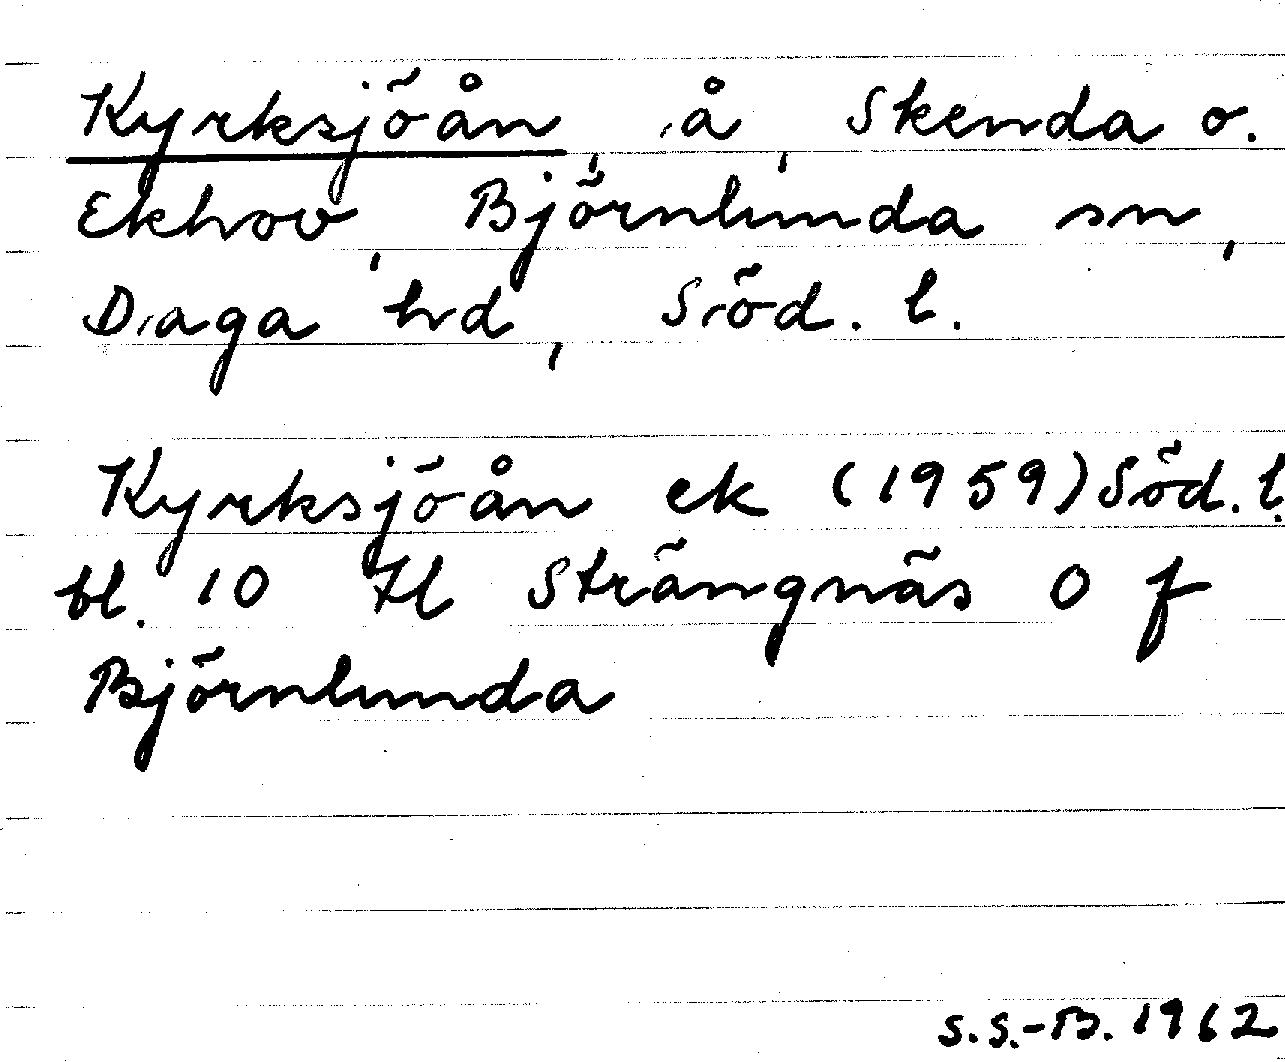 Kyrksjöån, å, Skenda o.
Ekhov, Björnlunda sn,
Daga hd, Söd. l.
Kyrksjöån ek (1959) Söd. l.
bl. 10 Hl Strängnäs O f
Björnlunda
S.S.-B. 1962